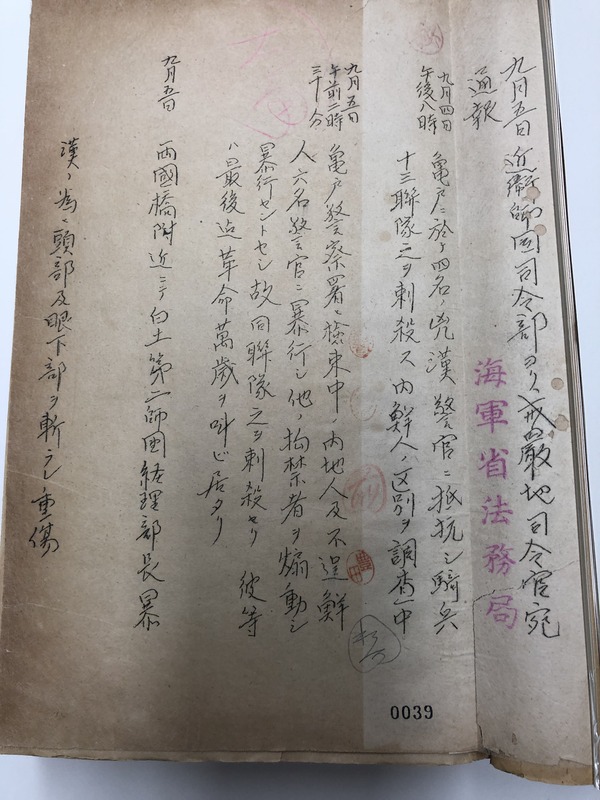 九月五日近衛師団司令部ヨリ戒厳地司令官宛
通報
海軍省法務局
九月四日
午後八時
亀戸ニ於テ四名ノ兇漢警官ニ抵抗シ騎兵
十三聯隊之ヲ刺殺ス内鮮人ノ区別ヲ調査中
九月五日
午前三時
三十分
亀戸警察署ニ検束中ノ内地人及不逞鮮
人六名警官ニ暴行シ他ノ拘禁者ヲ煽動シ
暴行セントセシ故同聯隊之ヲ刺殺セリ 彼等
ハ最後迠革命萬歳ヲ叫ビ居タリ
九月五日
両國橋附近ニテ白土第二師団経理部長暴
漢ノ為メ頭部及眼下部ヲ斬ラレ重傷
0039